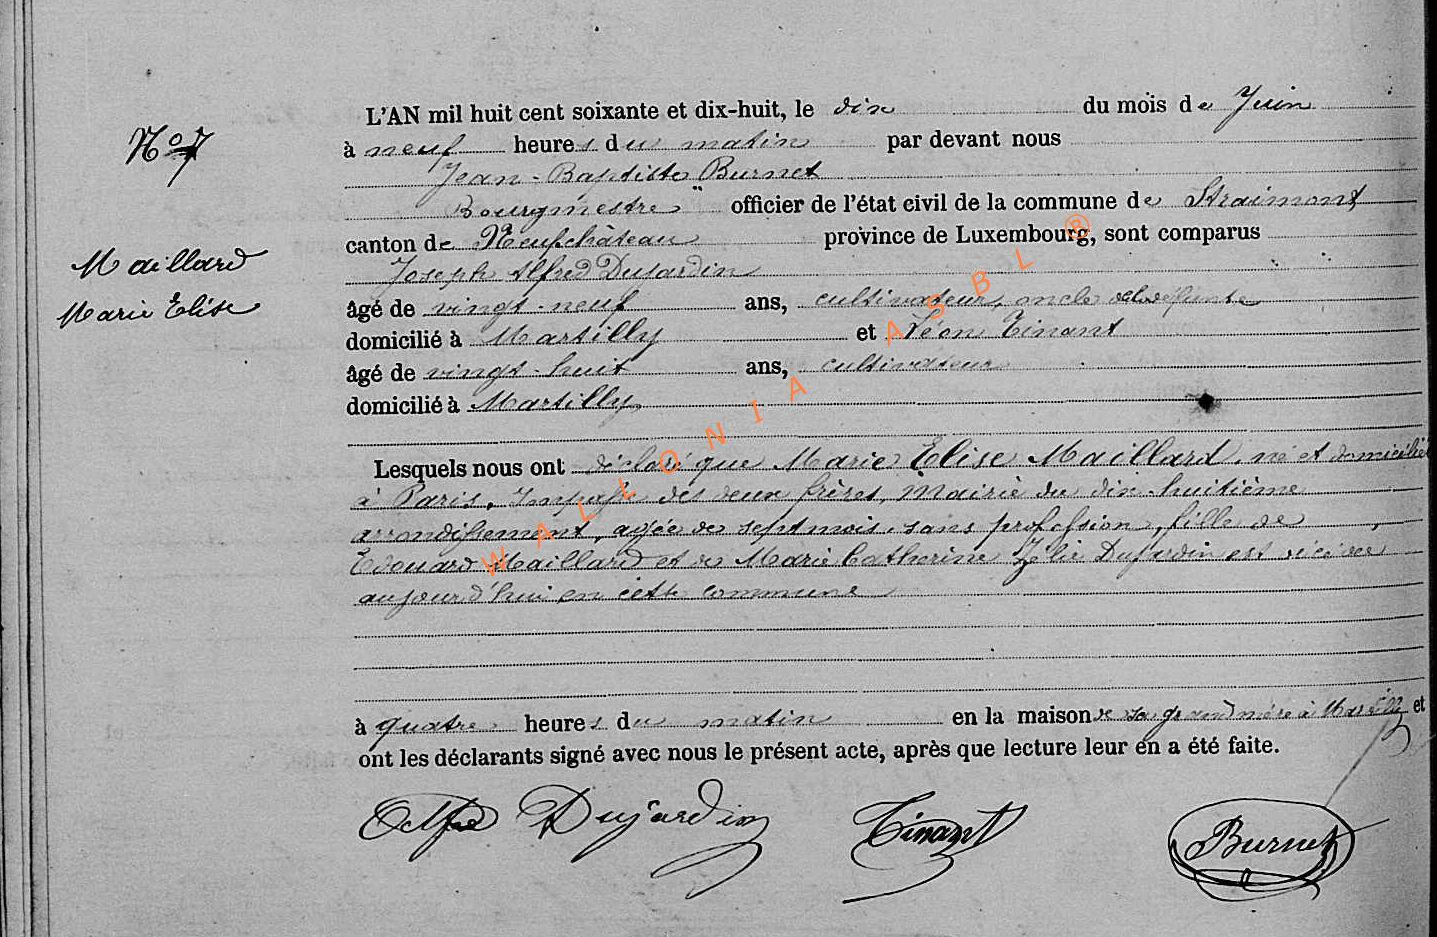 L'AN mil huit cent soixante et dix-huit, le dix du mois de Juin
No 7
à neuf heures du matin par devant nous
Jean-Baptiste Burnet
Bourgmestre officier de l'état civil de la commune de Straimont
canton de Neufchâteau province de Luxembourg, sont comparus
Maillard
Marie Elise
Joseph Alfred Dujardin
âgé de vingt-neuf ans, cultivateur, oncle de la défunte
domicilié à Martilly et Léon Tinant
âgé de vingt-huit ans, cultivateur
domicilié à Martilly
Lesquels nous ont déclaré que Marie Elise Maillard, né et domicilié
à Paris, des deux frères, Mairie du dix-huitième
arrondissement, agée de sept mois, sans profession, fille de
Edouard Maillard et de Marie Catherine Zélie Dujardin est décédée
aujourd'hui en cette commune
à quatre heures du matin en la maison de sa grand mère à Martilly et
ont les déclarants signé avec nous le présent acte, après que lecture leur en a été faite.
Alfred Dujardin Tinant Burnet
WALLONIA ASBL ®